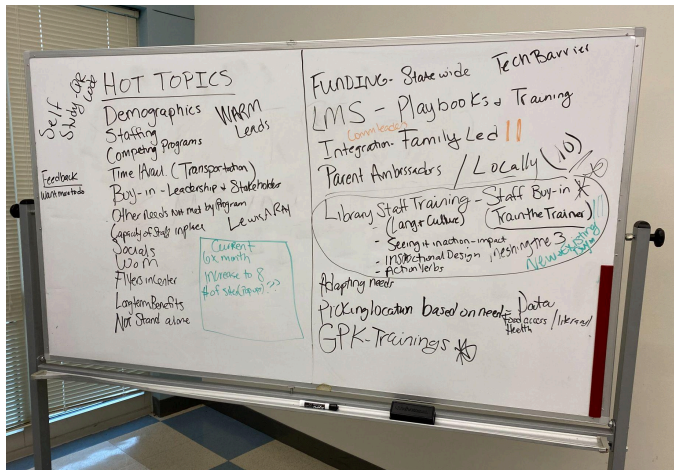 Self
Study-QR
Code
HOT TOPICS
Demographics
Staffing
WARM
Leads
Competing Programs
Time/Avail. (Transportation)
Feedback
Want more to do
Buy-in-Leadership & Stakeholder
Other Needs Not met by Program
Capacity of Staff in place
Socials
WoM
Flyers in Center
Longterm Benefits
Not Stand alone
Current
6x month
increase to 8
# of sites (Pop up)
FUNDING- Statewide
Tech Barrier
LMS - Playbooks & Training
Integration- Family Led
Parent Ambassadors / Locally (10)
Library Staff Training - Staff Buy-in
(Lang & Culture)
(Train the Trainer)
- Seeing it in action-impact
- Instructional Design
- Action Verbs
Meshing the 3
New & Existing
Adapting needs
Picking location based on need- Data
Food access / literacy /
Health
GPK-Trainings